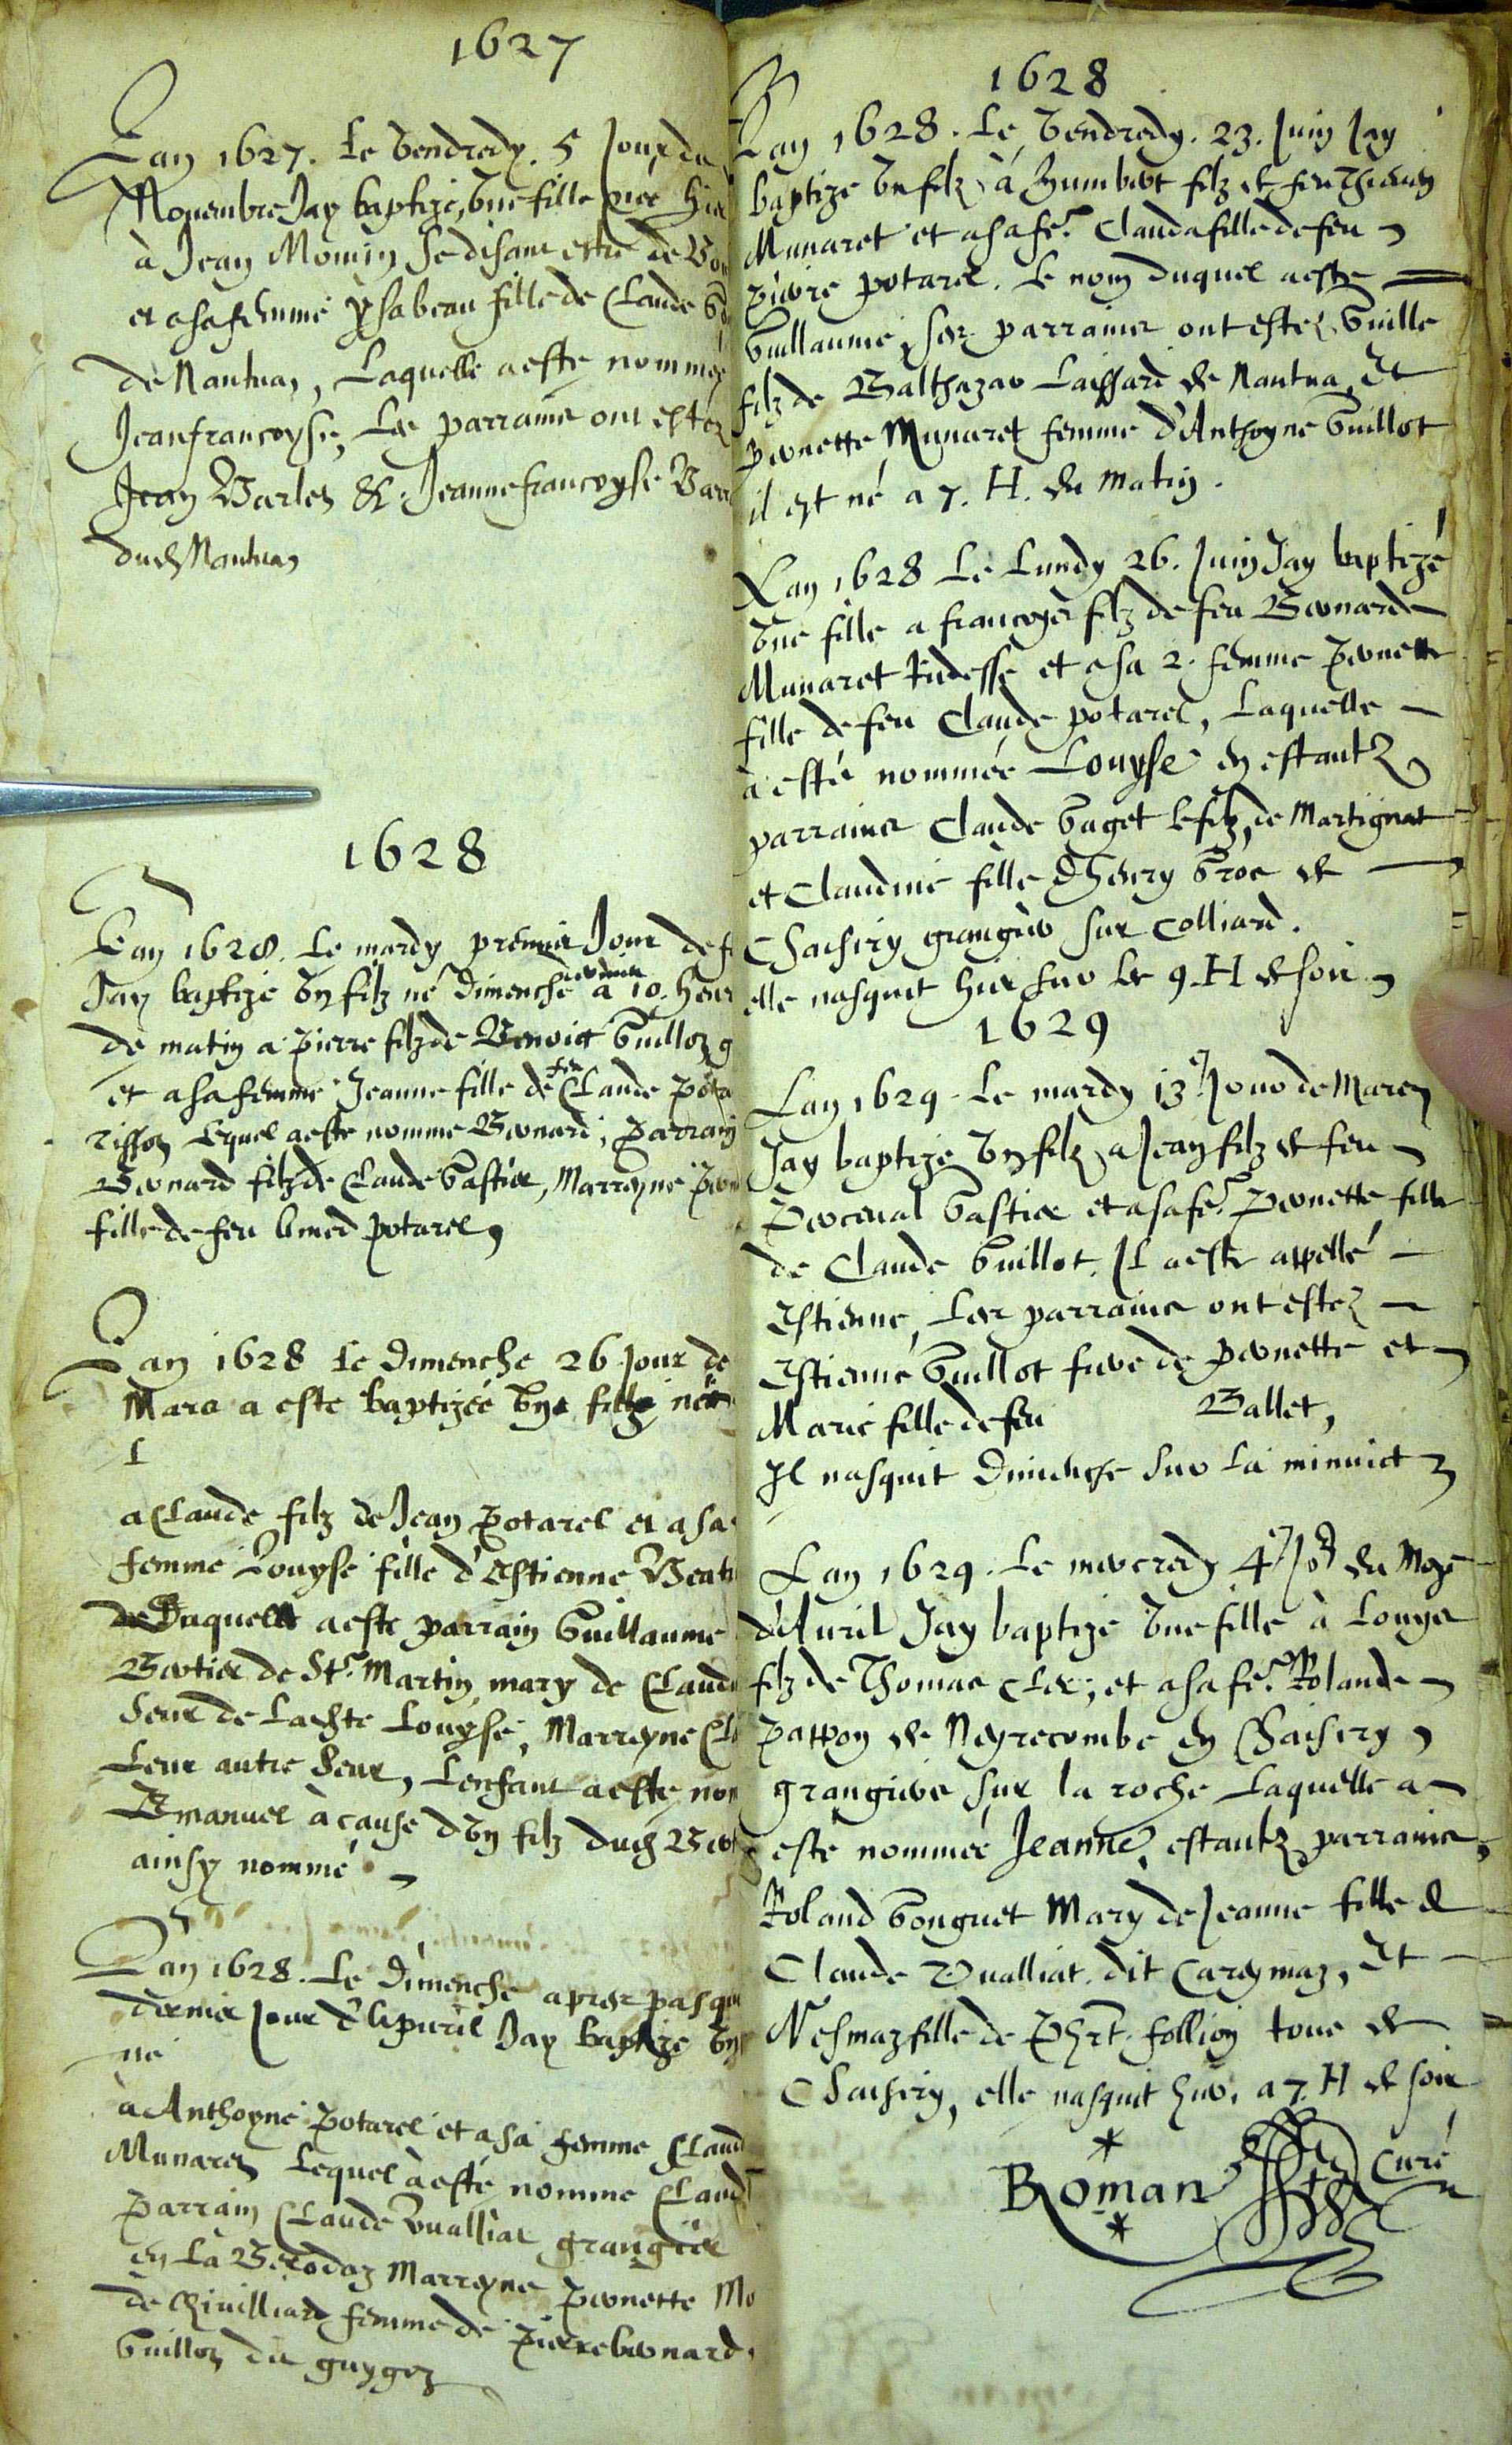 1627
Lan 1627. Le Vendredy. 5 Jour du
Nouembre Jay baptizé, Vne fille née hie
à Jean Monin se disant estre de
et a sa femme ysabeau fille de Claude
de Nantua, Laquelle a esté nommée
Jeanfrancoyse, Les parrains ont estez
Jean Varlez &. Jeanne francoyse
dud Nantua
1628
Lan 1628. Le mardy premier Jour de
Jay baptizé Vn filz né Dimenche dernier à 10. heur
de matin à pierre filz de Benoict Guilloz
et a sa femme Jeanne fille de feu Claude pota
Tiffoz Lequel a esté nommé Bernard, parrain
Bernard filz de Claude Gastier, Marreyne
fille de feu Amed potarel,
Lan 1628 Le Dimenche 26. Jour de
Mars a esté baptizée Vne fille née
L
a Claude filz de Jean Potarel et a sa
femme Louyse fille d'Estienne
de Duquell a esté parrain Guillaume
Bertier de St. Martin, mary de Claud
seur de Ladite Louyse, Marreyne Cl
Leur autre seur, Lenfant a esté nom
Emanuel à cause dVn filz dud
ainsy nommé
Lan 1628. Le Dimenche apres pasqu
dernier Jour d'Apuril Jay baptizé Vn
né
à Anthoyne Potarel et a sa femme Claud
Munarez Lequel à esté nommé Claud
Parrain Claude Vualliat grangier
en La Marreyne pernette Mo
de femme de pierrebernard
Guilloz du guygoz
1628
Lan 1628. Le Vendredy. 23. Juin Jay
baptizé Vn filz à humbert filz de feu Thieuen
Munaret et a sa fe. Clauda fille de feu
Pierre potarel. Le nom duquel a esté
Guillaume, ses parrains ont estez Guille
filz de Balthazar Laissard de Nantua, Et
pernette Munaret femme d'Anthoyne Guillot
il est né a 7. H. du matin.
Lan 1628 Le Lundy 26. Juin Jay baptizé
Vne fille a francoys filz de feu Bernard
Munaret Rudesse et a sa 2. femme pernette
fille de feu Claude potarel, Laquelle
à esté nommée Louyse en estantz
parrains Claude Guget Lefilz de Martignat
et Claudine fille dhenry Groz de
Chaisery grangier sur Colliard.
elle nasquit hier sur Les 9. H de soir
1629
Lan 1629. Le mardy 13e Jour de Marcz
Jay baptizé Vn filz a Jean filz de feu
Perceual Gastier et a sa fe. Pernette fille
de Claude Guillot. Il a esté appellé
Estienne, Les parrains ont estez
Estienne Guillot frere de pernette et
Marie fille de feu Ballet,
Il nasquit Dimenche sur La minuict
Lan 1629. Le mercredy 4e Jor du Moys
d'Auril Jay baptizé Vne fille à Louys
filz de Thomas Clerc, et a sa fe. Rolande
Pappon de Neyrecombe en Chaisery,
grangiers sur la roche Laquelle a
esté nommée Jeanne, estantz parrains
Roland Gonguet Mary de Jeanne fille de
Claude Vualliat dit Careymaz, Et
Nesmaz fille de Follion tous de
Chaisery, elle nasquit hier, a 7. H de soir
Roman Curé